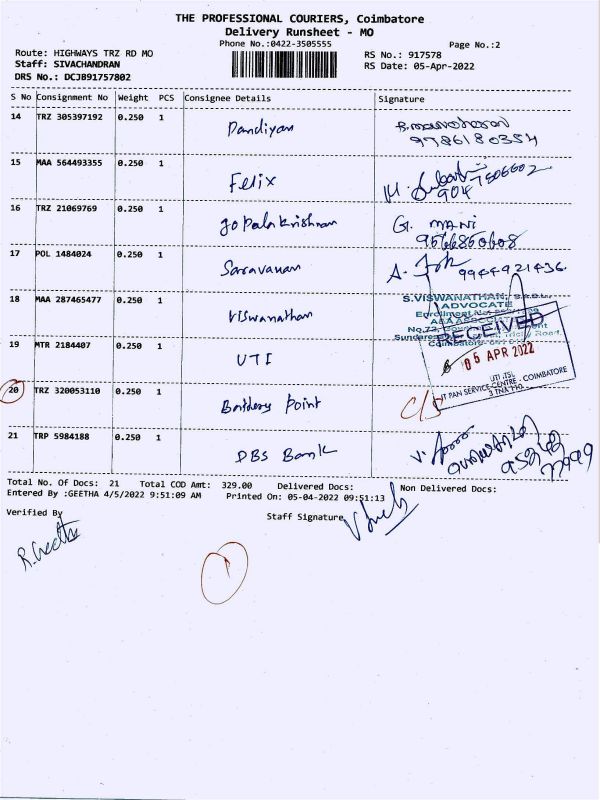 THE PROFESSIONAL COURIERS, Coimbatore
Delivery Runsheet - MO
Phone No.:0422-3505555
Page No.:2
Route: HIGHWAYS TRZ RD MO
RS No.: 917578
Staff: SIVACHANDRAN
RS Date: 05-Apr-2022
DRS No.: DCJ891757802
S No Consignment No Weight PCS Consignee Details Signature
14 TRZ 305397192 0.250 1 Pandiyan B.manoharan
9786180354
15 MAA 564493355 0.250 1 Felix
904 7506602
16 TRZ 21069769 0.250 1 gopalakrishnan G. MANI
9566850608
17 POL 1484024 0.250 1 Saravanan A.
9944921436.
18 MAA 287465477 0.250 1 Viswanathan S.VISWANATHAN,
ADVOCATE
19 MTR 2184407 0.250 1 UTI RECEIVED
05 APR 2022
UTI ITSL
PAN SERVICE CENTRE - COIMBATORE
20 TRZ 320053110 0.250 1 Battery Point C/S
21 TRP 5984188 0.250 1 DBS Bank V.
Total No. Of Docs: 21 Total COD Amt: 329.00 Delivered Docs: Non Delivered Docs:
Entered By :GEETHA 4/5/2022 9:51:09 AM Printed On: 05-04-2022 09:51:13
Verified By Staff Signature
R.Geetha
1